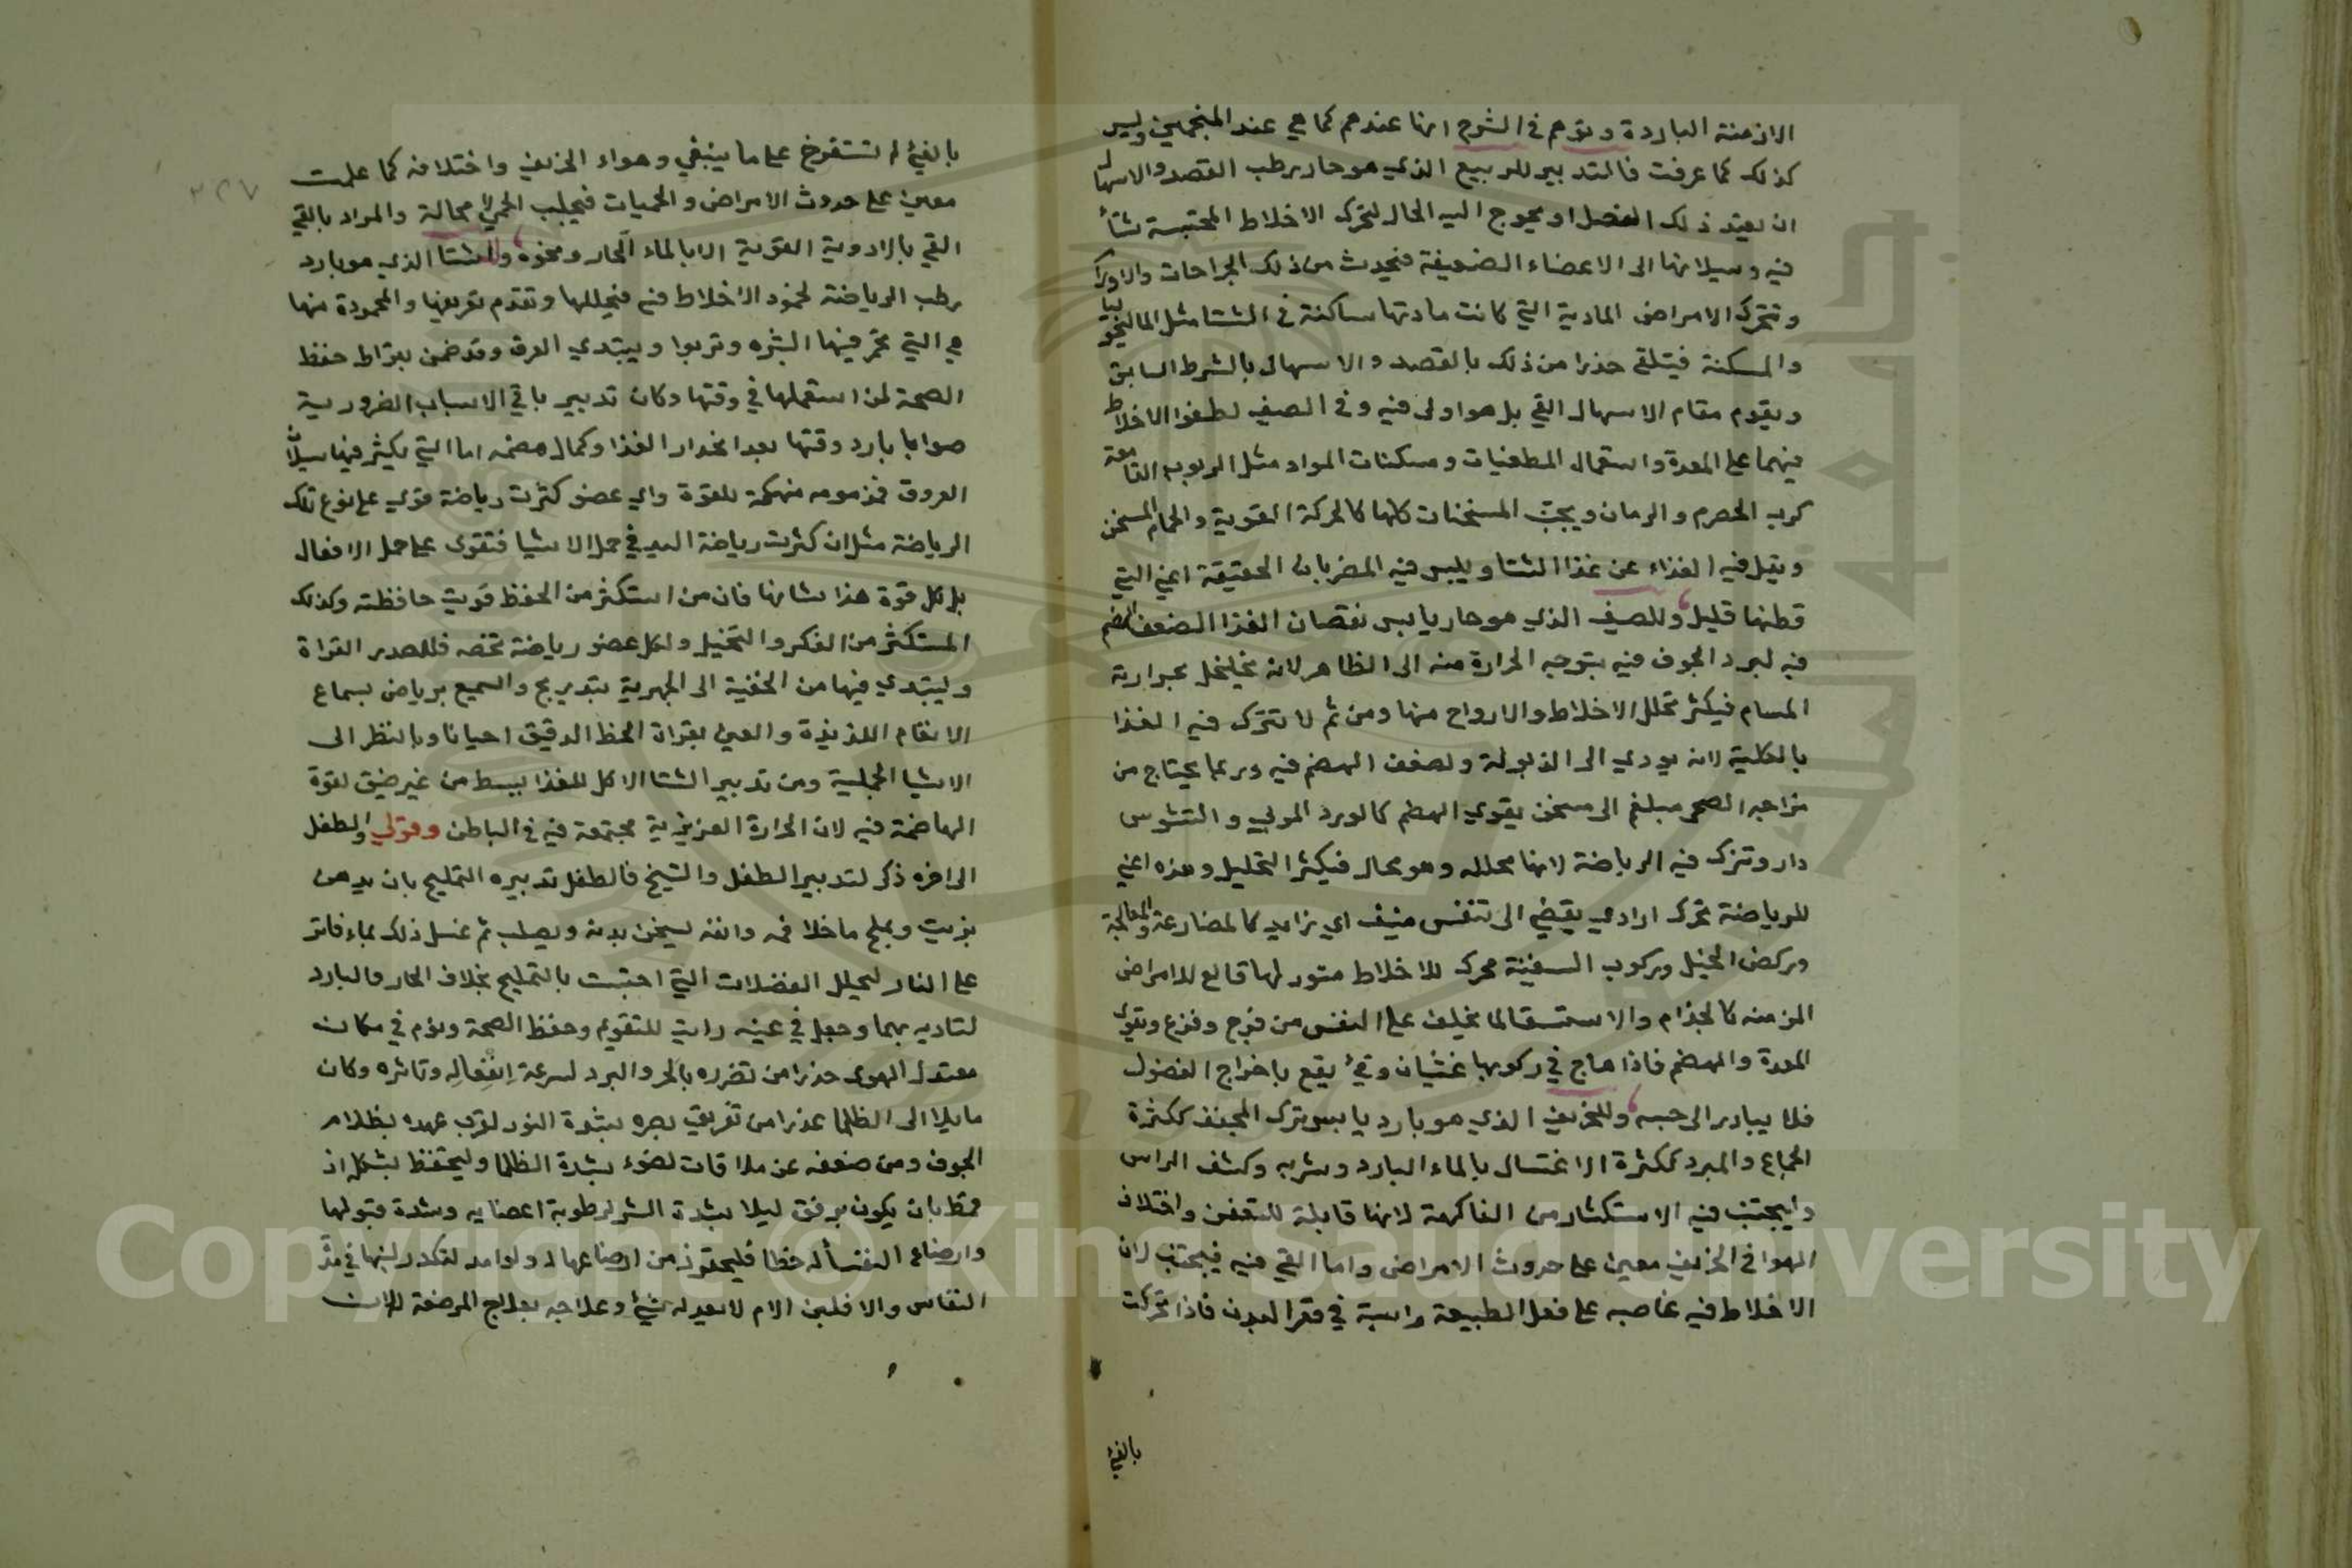 الازمنة الباردة وتوهم في الشرح انها عندهم كما هي عند المنجمين وليس
كذلك كما عرفت فالتدبير للربيع الذي هو حار رطب الفصد والاسهال
ان اعتيد ذلك الفصل او يحوج اليه الحال لتحرك الاخلاط المحتبسة شتاء
فيه وسيلانها الى الاعضاء الضعيفة فيحدث من ذلك الجراحات والاورام
وتتحرك الامراض المادية التي كانت مادتها ساكنة في الشتا مثل الماليخوليا
والسكتة فيتلقى حذرا من ذلك بالفصد والاسهال بالشرط السابق
ويقوم مقام الاسهال القي بل هو اولى فيه وفي الصيف لطفو الاخلاط
فيهما على المعدة واستعمال المطفيات ومسكنات المواد مثل الربوب القامعة
كرب الحصرم والرمان ويجتنب المسخنات كلها كالحركة القوية والحمام المسخن
ويقل فيه الغذاء عن غذا الشتا ويلبس فيه المضربات الخفيفة اعني التي
قطنها قليل وللصيف الذي هو حار يابس نقصان الغذا لضعف الهضم
فيه لبرد الجوف فيه بتوجه الحرارة منه الى الظاهر لانه يخلخل بحرارته
المسام فيكثر تحلل الاخلاط والارواح منها ومن ثم لا تترك فيه الغذا
بالكلية لانه يودي الى الذبول ولضعف الهضم فيه وربما يحتاج من
مزاجه الصحي مبلغم الى مسخن يقوي الهضم كالورد المربي و
دار وتترك فيه الرياضة لانها محللة وهو محلل فيكثر التحليل وهذه اعني
للرياضة تحرك ارادي يفضي الى تنفس منيف اي تزايد كالمصارعة والمعالجة
وركض الخيل وركوب السفينة محرك للاخلاط مثور لها قالع للامراض
المزمنه كالجذام والاستسقا لما يختلف على النفس من فرح وفزع وتقوي
المعدة والهضم فاذا هاج في ركوبها غثيان وقيء يقع باخراج الفضول
فلا يبادر الى حبسه وللخريف الذي هو بارد يابس ترك المجفف ككثرة
الجماع والمبرد ككثرة الاغتسال بالماء البارد وشربه وكشف الراس
وليجتنب فيه الاستكثار من الفاكهة لانها قابلة للتعفن واختلاف
الهوا في الخريف معين على حدوث الامراض واما القي فيه فيجتنب لان
الاخلاط فيه عاصيه على فعل الطبيعة راسبة في قعر البدن فاذا تحركت
بالقيء
بالقيء لم تستفرغ على ما ينبغي وهواء الخريف واختلافه كما علمت
معين على حدوث الامراض والحميات فيجلب الحمى لا محالة والمراد بالقي
القي بالادوية القوية الا بالماء الحار ونحوه وللشتا الذي هو بارد
رطب الرياضة لجمود الاخلاط فيه فيحللها وتقدم تعريفها والمحمودة منها
هي التي تحمر فيها البشره وتربوا ويبتدي العرق وقد ضمن بقراط حفظ
الصحة لمن استعملها في وقتها وكان تدبير باقي الاسباب الضرورية
صوابا بارد وقتها بعد انحدار الغذا وكمال هضمه اما التي يكثر فيها سيلان
العروق فمذمومه منهكة للقوة واي عضو كثرت رياضة قوي على نوع تلك
الرياضة مثل ان كثرت رياضة اليد في حمل الاشيا فتقوى على حمل الاثقال
بل كل قوة هذا شانها فان من استكثر من الحفظ قويت حافظته وكذلك
المستكثر من الفكر والتخيل ولكل عضو رياضة تخصه فللصدر القراة
وليبتدي فيها من الخفية الى الجهرية بتدريج والسمع يرياض بسماع
الانغام اللذيذة والعين بقراة الخط الدقيق احيانا وبالنظر الى
الاشيا الجميلة ومن تدبير الشتا الاكل للغذا ببسط من غير ضيق لقوة
الهاضمة فيه لان الحرارة الغريزية مجتمعة فيه في الباطن وقولي والطفل
الى اخره ذكر لتدبير الطفل والشيخ فالطفل تدبيره التمليح بان يدهن
بزيت ويملح ما خلا فمه وانفه ليسخن بدنه ويصلب ثم غسل ذلك بماء فاتر
على النار ليحلل الفضلات التي احتبست بالتمليح بخلاف الحار والبارد
لتاذيه بهما وجعل في عينيه زيت للتقويم وحفظ الصحة ونوم في مكان
معتدل الهوى حذرا من تضرره بالحر والبرد لسرعة انفعاله وتاثره وكان
مايلا الى الظلما حذرا من تفريق بصره بشدة النور لقرب عهده بظلام
الجوف ومن ضعفه عن ملاقات لضوء بشدة الظلما وليحتفظ بشكل اذ
قمط بان يكون برفق ليلا بشدة الشر لرطوبة اعضايه وشدة قبولها
وارضاع النفسا له خطا فليحترز من ارضاعها له ولو امه لتكدر لبنها في مدة
النفاس والا فلبن الام لا يعدله شيء وعلاجه بعلاج المرضعة لان
٢٢٧
Copyright © King Saud University